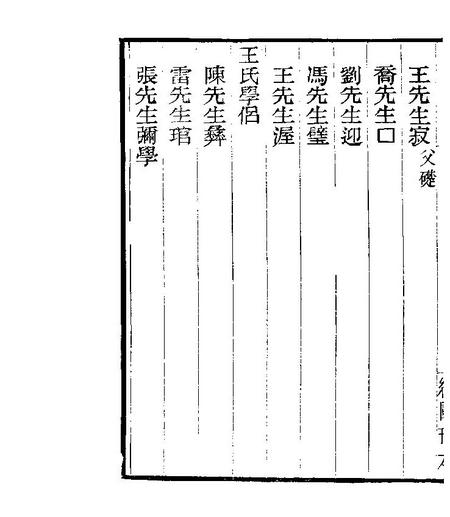 王先生寂父礎
喬先生口
劉先生迎
馮先生璧
王先生渥
王氏學侶
陳先生彝
雷先生琯
張先生彌學